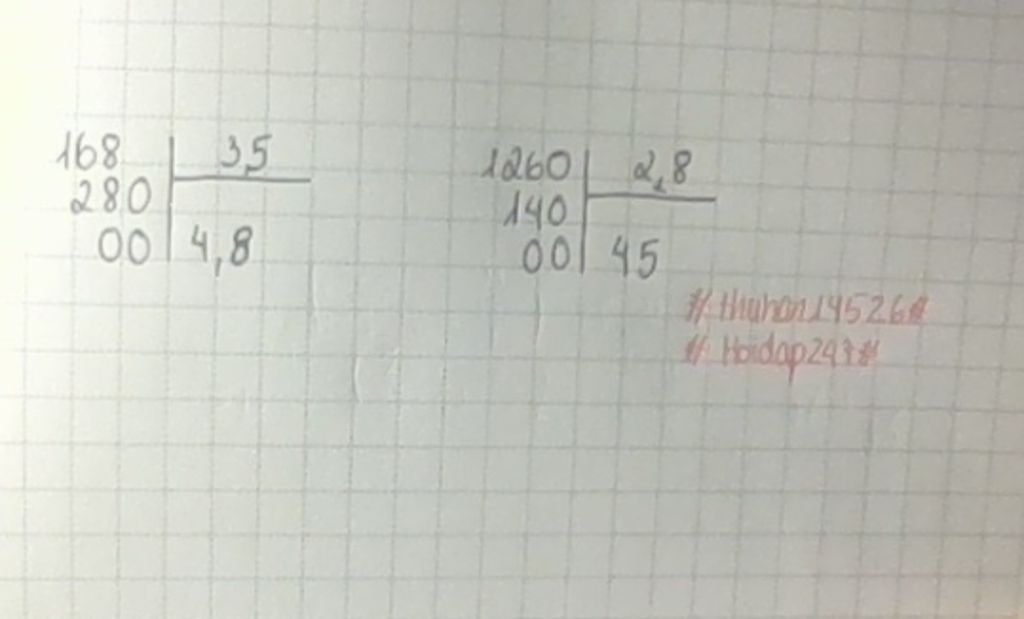 168 35
280
00 4,8
1260 2,8
140
00 45
# thuhan14526#
# Hoidap247#